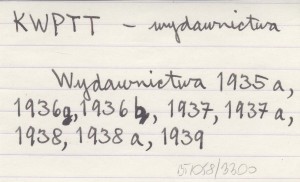 KWPTT – wydawnictwa
Wydawnictwa 1935a,
1936g, 1936b, 1937, 1937a,
1938, 1938a, 1939